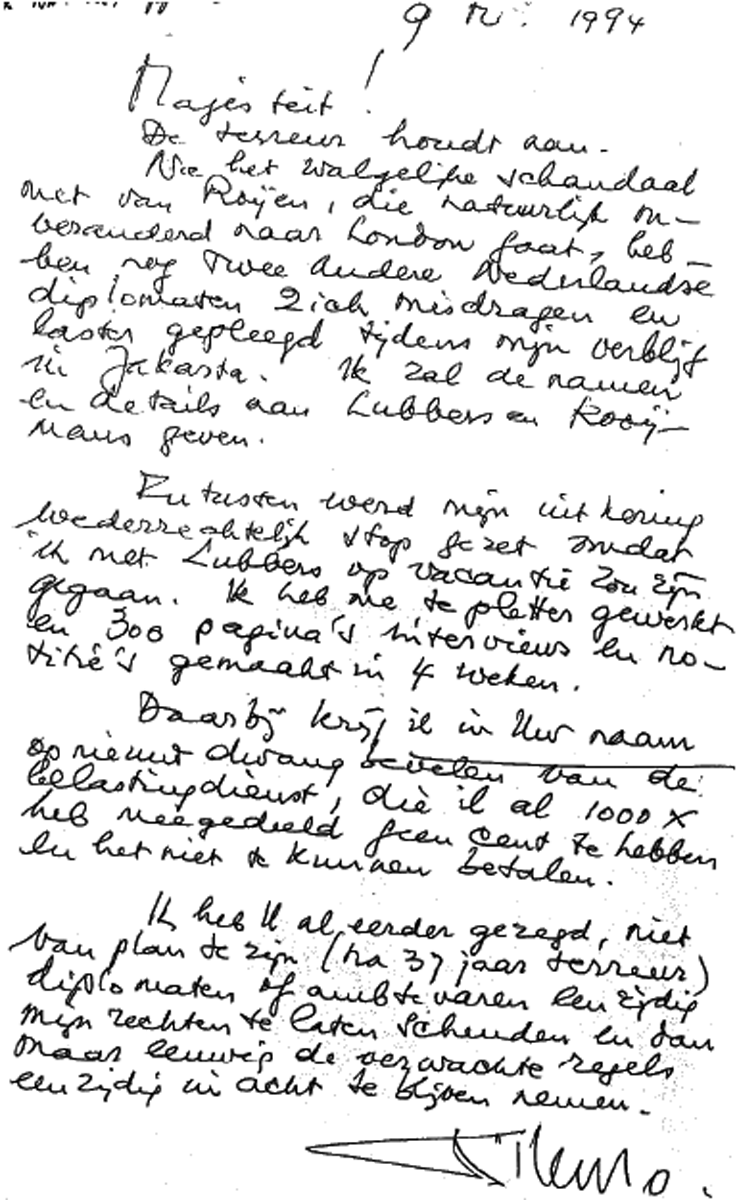 9 1994
Majesteit!
De terreur houdt aan.
Na het walgelijke schandaal
met van Roijen, die natuurlijk on-
veranderd naar London gaat, heb-
ben nog twee andere Nederlandse
diplomaten zich misdragen en
laster gepleegd tijdens mijn verblijf
in Jakarta. Ik zal de namen
en details aan Lubbers en Kooij-
mans geven.
Intussen werd mijn uitkering
wederrechtelijk stop gezet omdat
ik met Lubbers op vacantie zou zijn
gegaan. Ik heb me te pletter gewerkt
en 300 pagina's interviews en no-
titie's gemaakt in 4 weken.
Daarbij krijg ik in Uw naam
opnieuw dwang bevelen van de
belastingdienst, die ik al 1000 x
heb meegedeeld geen cent te hebben
en het niet te kunnen betalen.
Ik heb U al eerder gezegd, niet
van plan te zijn (na 37 jaar terreur)
diplomaten of ambtenaren eenzijdig
mijn rechten te laten schenden en dan
maar eeuwig de verwachte regels
eenzijdig in acht te blijven nemen.